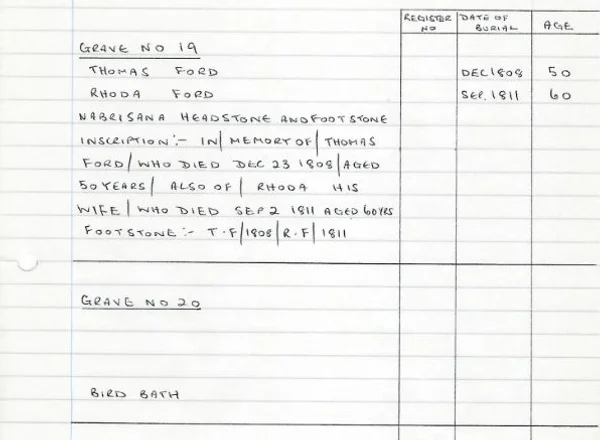 REGISTER NO DATE OF BURIAL AGE
GRAVE NO 19
THOMAS FORD DEC 1808 50
RHODA FORD SEP. 1811 60
NABRISANA HEADSTONE AND FOOTSTONE
INSCRIPTION:- IN| MEMORY OF| THOMAS
FORD| WHO DIED DEC 23 1808| AGED
50 YEARS| ALSO OF| RHODA HIS
WIFE| WHO DIED SEP 2 1811 AGED 60YRS
FOOTSTONE:- T.F|1808|R.F|1811
GRAVE NO 20
BIRD BATH